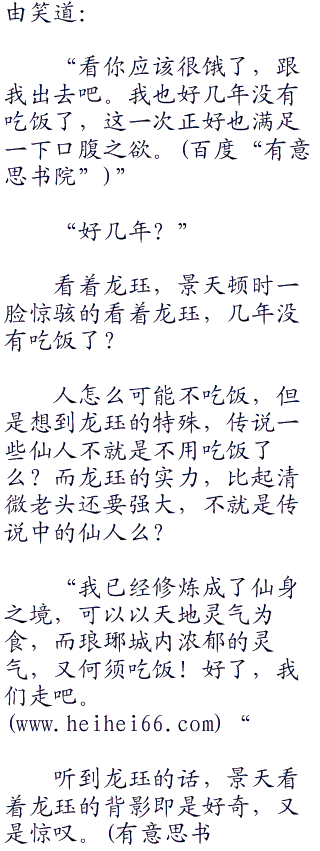 由笑道：
“看你应该很饿了，跟
我出去吧。我也好几年没有
吃饭了，这一次正好也满足
一下口腹之欲。(百度“有意
思书院”)”
“好几年？”
看着龙珏，景天顿时一
脸惊骇的看着龙珏，几年没
有吃饭了？
人怎么可能不吃饭，但
是想到龙珏的特殊，传说一
些仙人不就是不用吃饭了
么？而龙珏的实力，比起清
微老头还要强大，不就是传
说中的仙人么？
“我已经修炼成了仙身
之境，可以以天地灵气为
食，而琅琊城内浓郁的灵
气，又何须吃饭！好了，我
们走吧。
(www.heihei66.com)“
听到龙珏的话，景天看
着龙珏的背影即是好奇，又
是惊叹。(有意思书